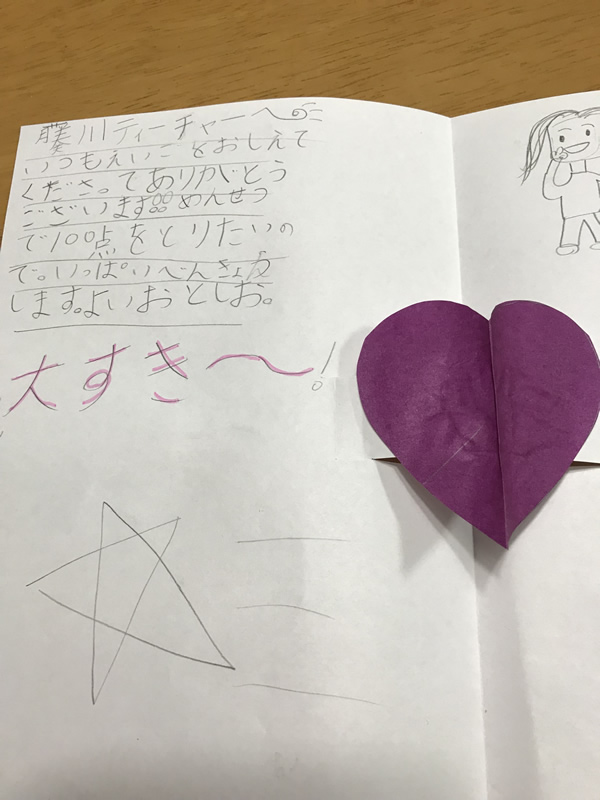 藤川ティーチャーへ
いつもえいごをおしえて
くださってありがとう
ございます!!!めんせつ
で100点をとりたいの
で。いっぱいべんきょう
します。よいおとしお。
大すき〜!